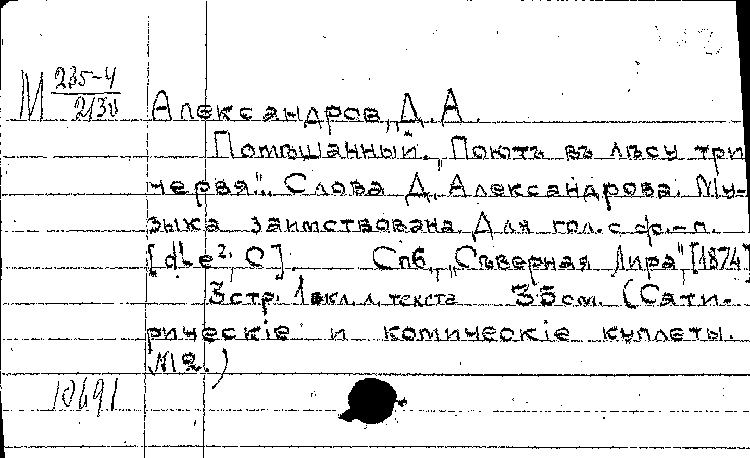 М 235-4/2130
Александров, Д. А.
Помѣшанный. "Поютъ въ лѣсу три
червя". Слова Д. Александрова. Му-
зыка заимствована. Для гол. с ф.-п.
[d¹-e², C]. Спб., "Сѣверная Лира", [1874]
3 стр. 1 вкл. л. текста 35 см. (Сати-
рическіе и комическіе куплеты.
№ 2.)
10691